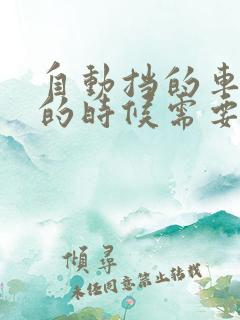 自動挡的車
的時候需要
傾尋
未經同意禁止轉載